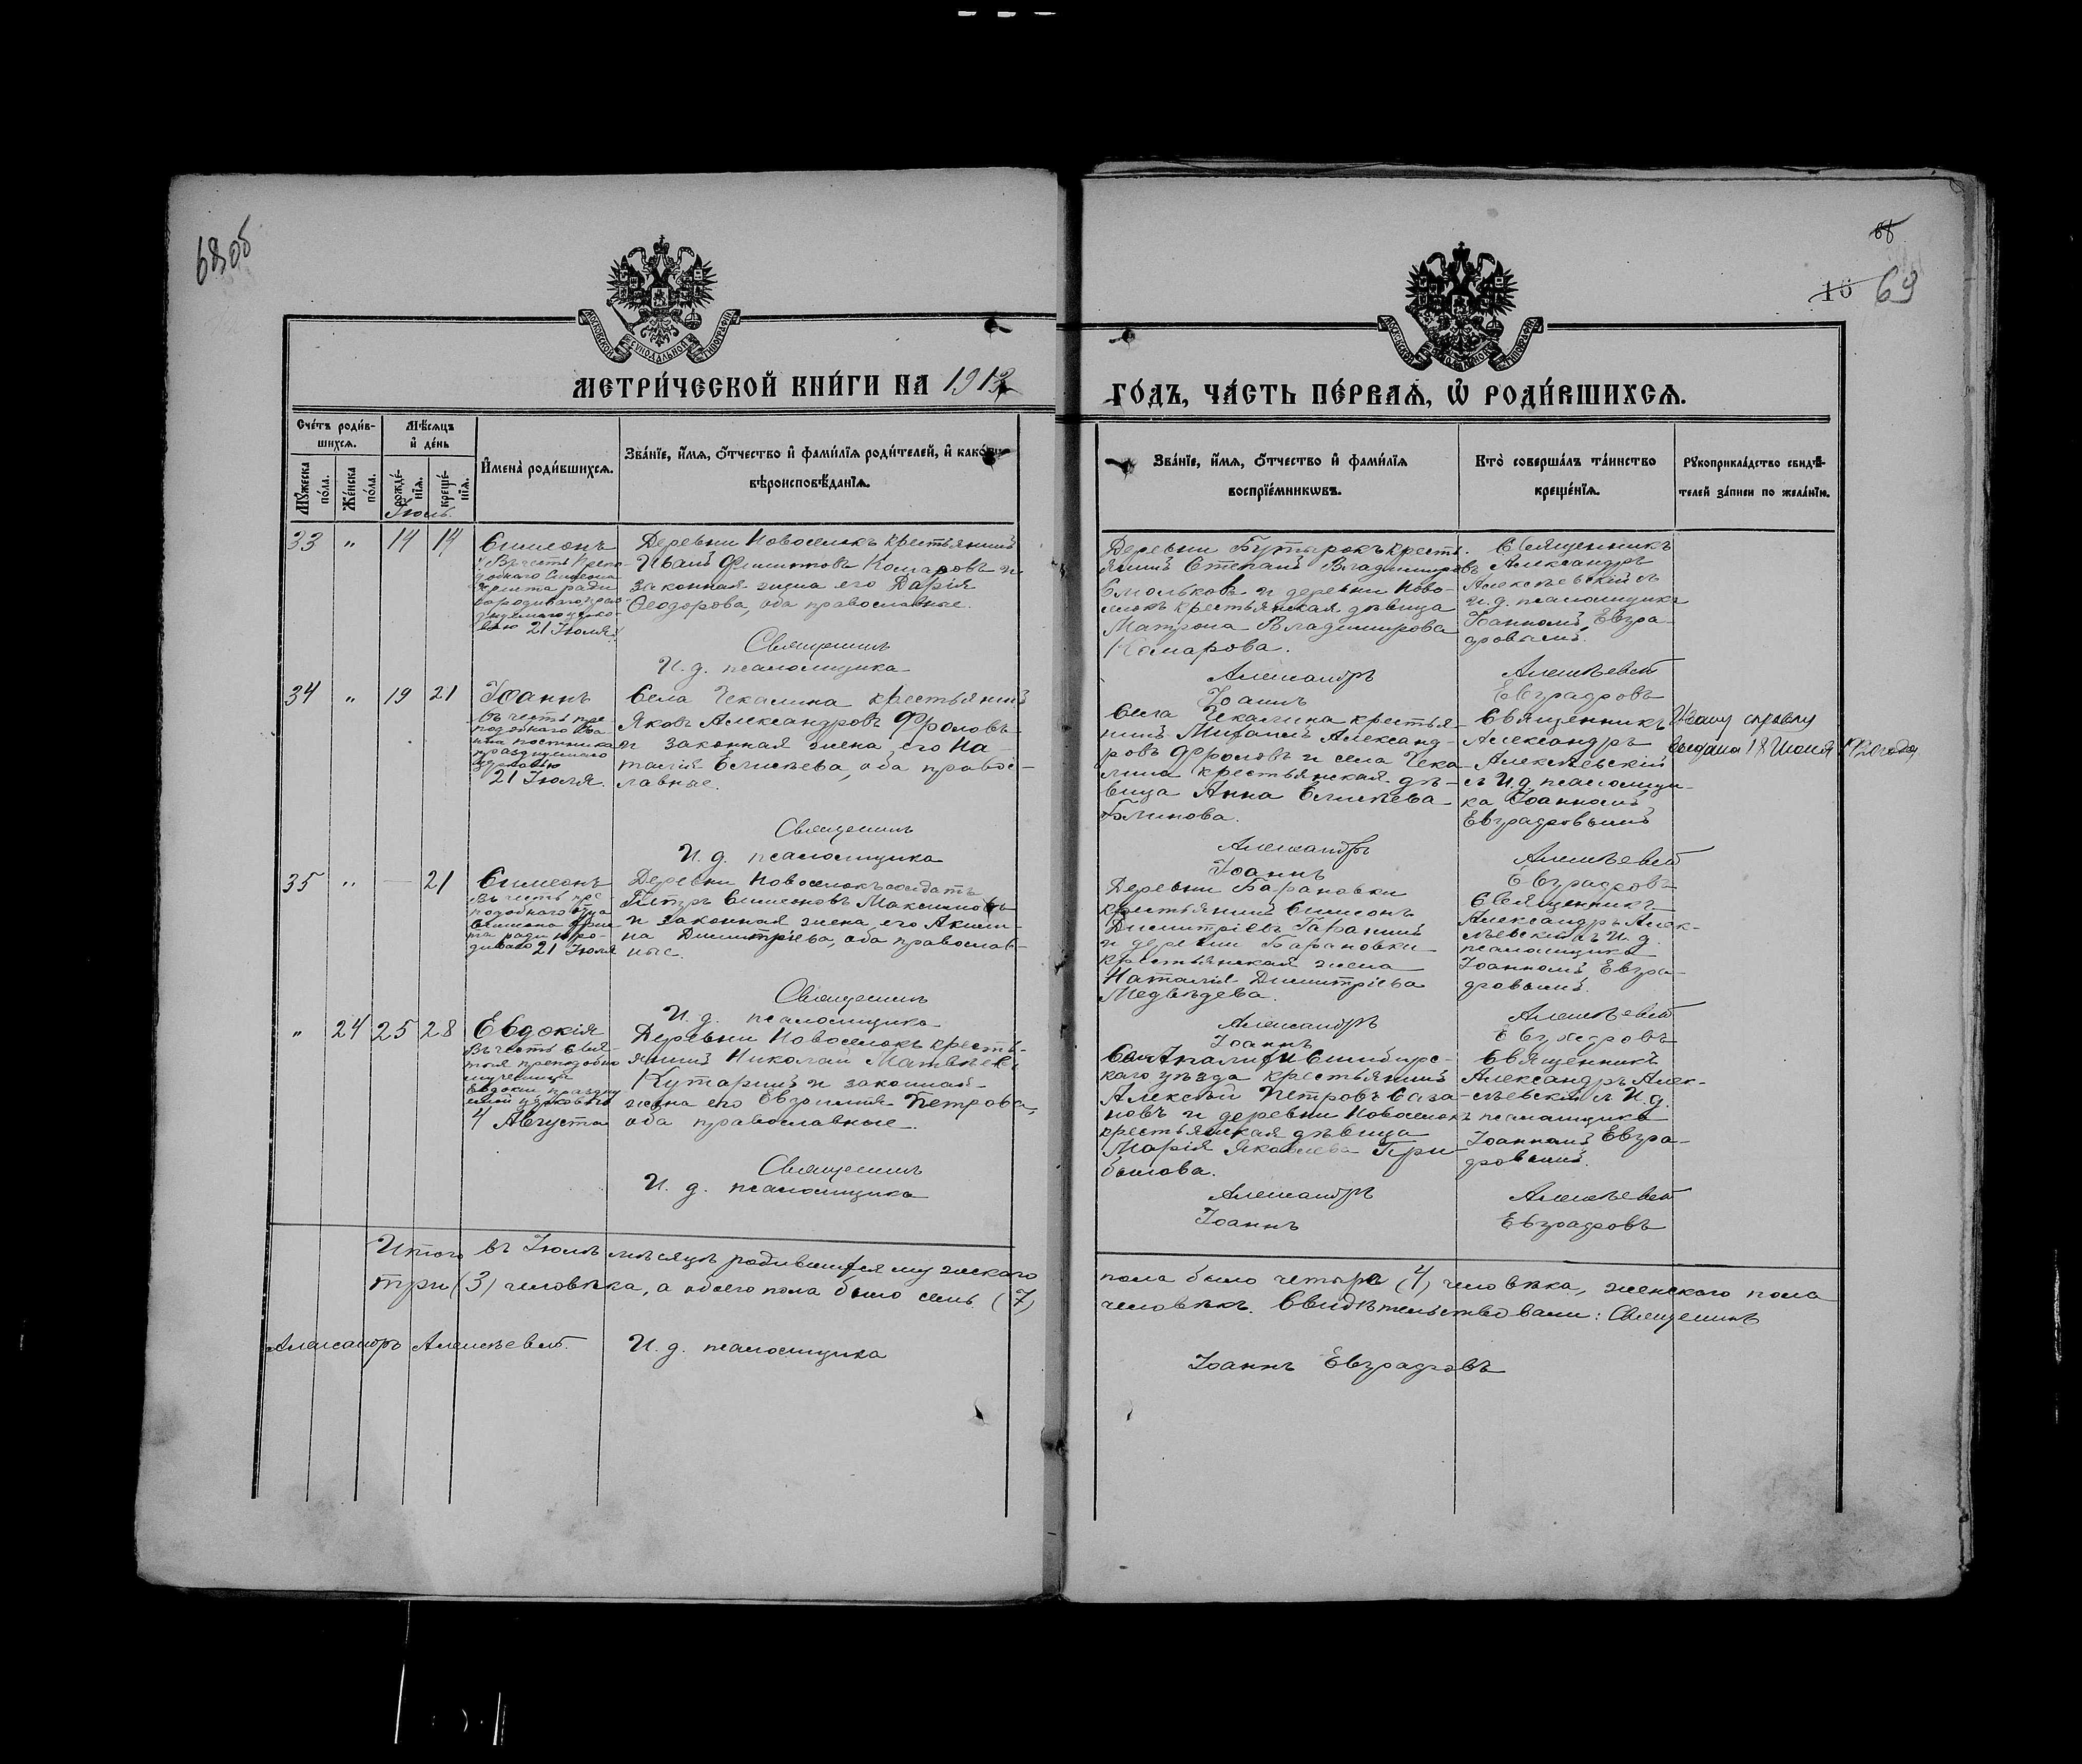 68об
68
16 69
МОСКОВСКОЙ СѴНОДАЛЬНОЙ ТИПОГРАФІИ
МОСКОВСКОЙ СѴНОДАЛЬНОЙ ТИПОГРАФІИ
МЕТРИ́ЧЕСКОЙ КНИ́ГИ НА 1913
ГО́ДЪ, ЧА́СТЬ ПЕ́РВАѦ, Ѽ РОДИ́ВШИХСѦ.
Сче́тъ роди́в-
шихсѧ.
Мѣ́сяцъ
и҆ де́нь
Мꙋ́жеска
по́ла.
Же́нска
по́ла.
рожде́-
нїѧ.
креще́-
нїѧ.
И҆мена̀ роди́вшихсѧ.
Зва́нїе, и҆́мѧ, ѻ҆́тчество и҆ фами́лїѧ роди́телей, и҆ како́вы
вѣроисповѣ́данїѧ.
Зва́нїе, и҆́мѧ, ѻ҆́тчество и҆ фами́лїѧ
воспрїе́мникѡвъ.
Кто̀ соверша́лъ та́инство
креще́нїѧ.
Рꙋкоприкла́дство свидѣ́-
телей за́писи по жела́нїю.
Іюль.
33 " 14 14
Симеонъ
Въ честь Препо-
добнаго Симеона
Христа ради
21 Іюля.
Деревни Новоселокъ крестьянинъ
Иванъ Филипповъ Комаровъ и
законная жена его Дарія
Ѳеодорова, оба православные.
Священникъ
И. д. псаломщика
Деревни Бутырокъ кресть-
янинъ Степанъ Владимировъ
Смольковъ и деревни Ново-
селокъ крестьянская дѣвица
Матрона Владимирова
Комарова.
Александръ
Іоаннъ
Священникъ
Александръ
Алексѣевскій съ
и. д. псаломщика
Іоанномъ Евгра-
фовымъ.
Алексѣевскій
Евграфовъ
34 " 19 21
Іоаннъ
въ честь пре-
подобнаго Іоа-
нна постника
празднуемаго
церковью
21 Іюля.
Села Чекалина крестьянинъ
Яковъ Александровъ Фроловъ
и законная жена его На-
талія Елисѣева, оба правос-
лавные.
Священникъ
И. д. псаломщика
Села Чекалина крестья-
нинъ Михаилъ Александ-
ровъ Фроловъ и села Чека-
лина крестьянская дѣ-
вица Анна Елисѣева
Блинова.
Александръ
Іоаннъ
Священникъ
Александръ
Алексѣевскій
съ И. д. псаломщи-
ка Іоанномъ
Евграфовымъ
Алексѣевскій
Евграфовъ
справку
выдана 18 Июня
35 " — 21
Симеонъ
Въ честь пре-
подобнаго отца
Симеона Хрис-
та ради юро-
диваго 21 Іюля
Деревни Новоселокъ солдатъ
Петръ Симеоновъ Максимовъ
и законная жена его Акили-
на Димитріева, оба православ-
ные.
Священникъ
И. д. псаломщика
Деревни Барановки
крестьянинъ Симеонъ
Димитріевъ Гаранинъ
и деревни Барановки
крестьянская жена
Наталія Димитріева
Медвѣдева.
Александръ
Іоаннъ
Священникъ
Александръ Алек-
сѣевскій съ И. д.
псаломщика
Іоанномъ Евгра-
фовымъ.
Алексѣевскій
Евграфовъ
" 24 25 28
Евдокія
Въ честь свя-
тыя преподобно
мученицы
Евдокіи праздну
емой церковью
4 Августа
Деревни Новоселокъ кресть-
янинъ Николай Матвѣевъ
Кутаринъ и законная
жена его Евфимія Петрова,
оба православные.
Священникъ
И. д. псаломщика
Симбирс-
каго уѣзда крестьянинъ
Алексѣй Петровъ Саза-
новъ и деревни Новоселокъ
крестьянская дѣвица
Марія Яковлева При-
былова.
Александръ
Іоаннъ
Священникъ
Александръ Алек-
сѣевскій съ И. д.
псаломщика
Іоанномъ Евгра-
фовымъ.
Алексѣевскій
Евграфовъ
Итого въ Іюлѣ мѣсяцѣ родившихся мужескаго
пола было четыре (4) человѣка, женскаго пола
три (3) человѣка, а обоего пола было семь (7)
человѣкъ. Свидѣтельствовали: Священникъ
Александръ Алексѣевскій. И. д. псаломщика
Іоаннъ Евграфовъ